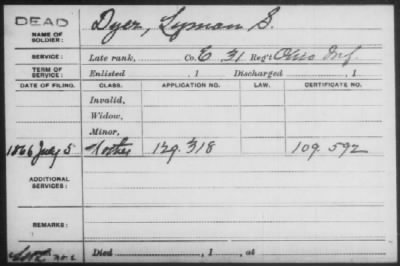 DEAD
NAME OF SOLDIER: Dyer, Lyman S.
SERVICE: Late rank, Co. E 31 Reg't Ohio Inf.
TERM OF SERVICE: Enlisted , 1 Discharged , 1
DATE OF FILING. CLASS. APPLICATION NO. LAW. CERTIFICATE NO.
Invalid,
Widow,
Minor,
1866 July 5 Mother 129.318 109.592
ADDITIONAL SERVICES:
REMARKS:
Died , 1 , at